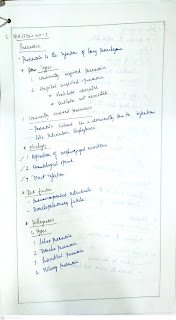 QUESTION NO-1
Pneumonia
- Pneumonia is the infection of lung parenchyma
* Types
1. Community acquired pneumonia
2. Hospital acquired pneumonia
* Ventilator associated
* Ventilator not associated
1. Community acquired pneumonia
- Pneumonia caused in a community due to infection
like
* Etiology
1. Aspiration of oropharyngeal secretions
2. Hematological spread
3. Direct infection
* Risk factors
- Immunocompromised individuals
-
* Pathogenesis
4 types
1. Lobar Pneumonia
2. Broncho Pneumonia
3. Interstitial Pneumonia
4. Miliary Pneumonia